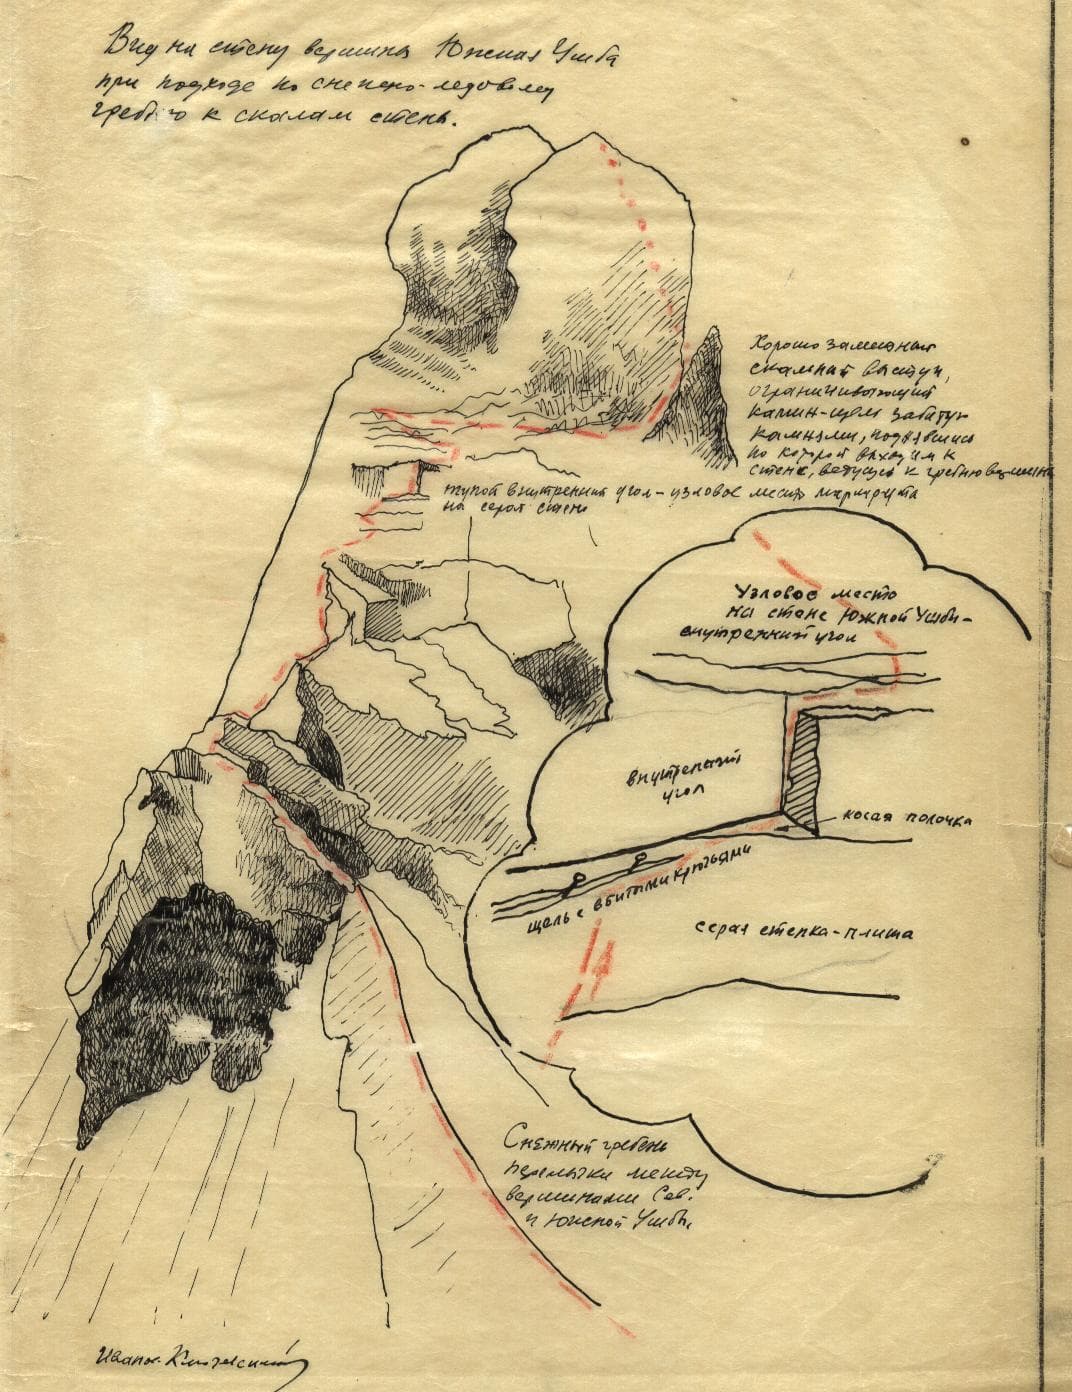 Вид на стену вершины Южная Ушба
при подходе по снежно-ледовому
гребню к скалам стены.
Хорошо заметный
скальный выступ,
ограничивающий
камин-щель забитую
камнями, поднявшись
по которой выходим к
стене, ведущей к гребню вершины
тупой внутренний угол - узловое место маршрута
на серой стене
Узловое место
на стене Южной Ушбы-
внутренний угол
внутренний
угол
косая полочка
щель с вбитыми крючьями
серая стенка-плита
Снежный гребень
перемычки между
вершинами Сев.
и Южной Ушбы.
Иванов-